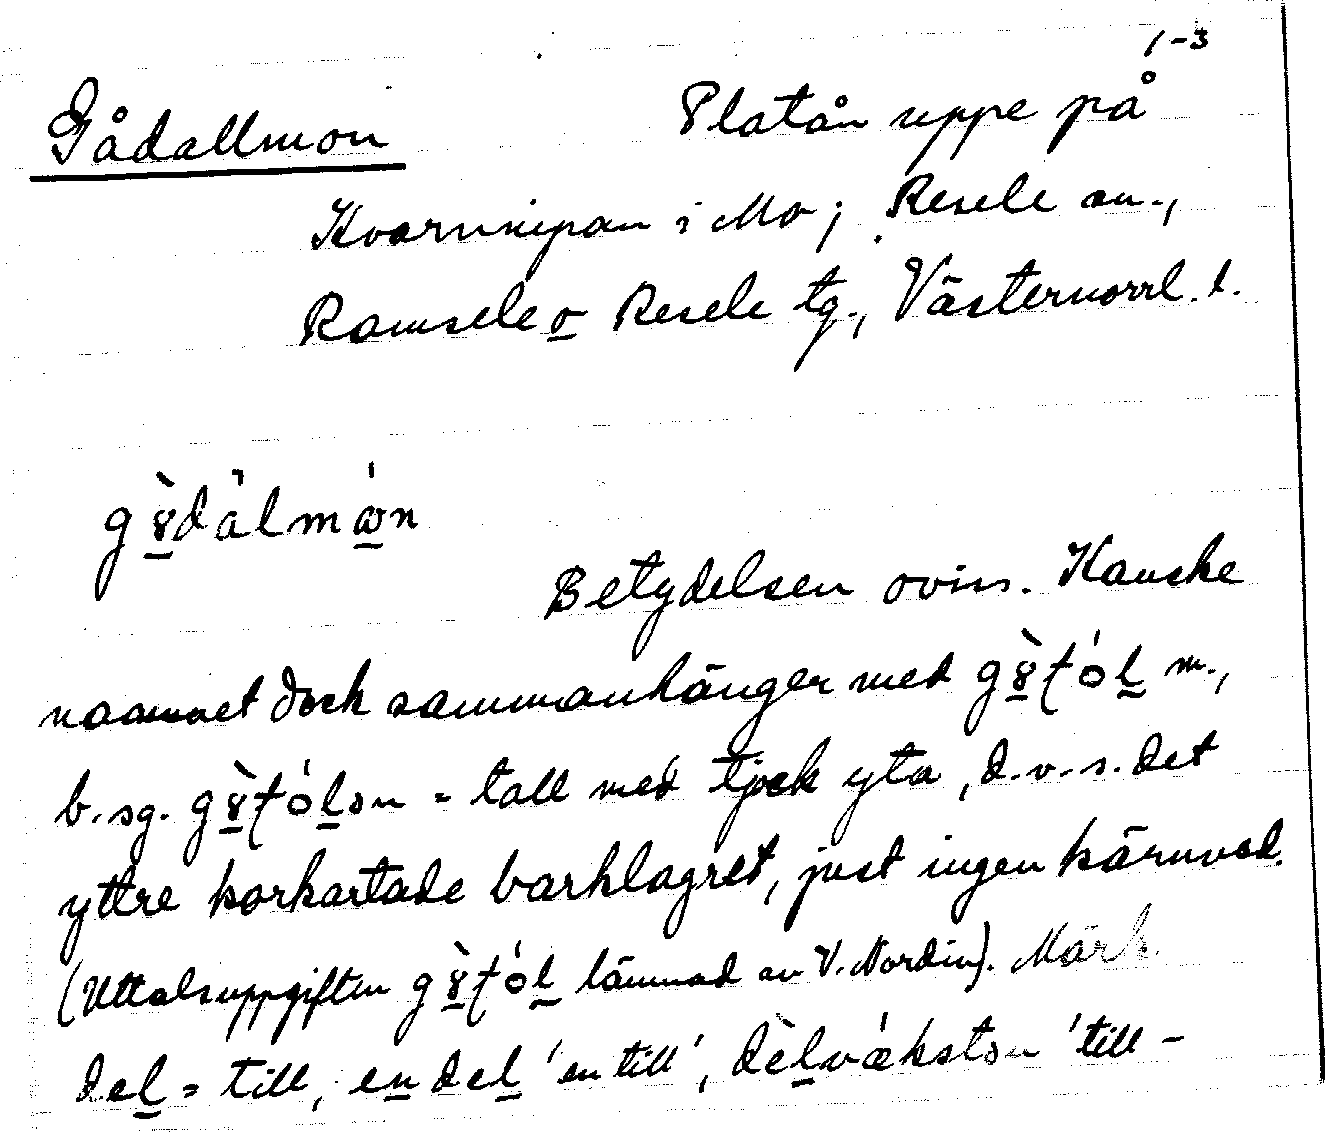 1-3
Gådallmon Platån uppe på
Kvarnnipan i Mo; Resele sn.,
Ramsele o Resele tg., Västernorrl. l.
gò̱dȧlmá̱n
Betydelsen oviss. Kanske
namnet dock sammanhänger med gò̱tóḻ m.,
b. sg. gò̱tóḻən = tall med tjock yta, d.v.s. det
yttre korkartade barklagret, just ingen kärnved.
(Uttalsuppgiften gò̱tóḻ lämnad av V. Nordin). Märk
deḻ = till, eṉ deḻ 'en till', dèḻvǽkstən 'till-